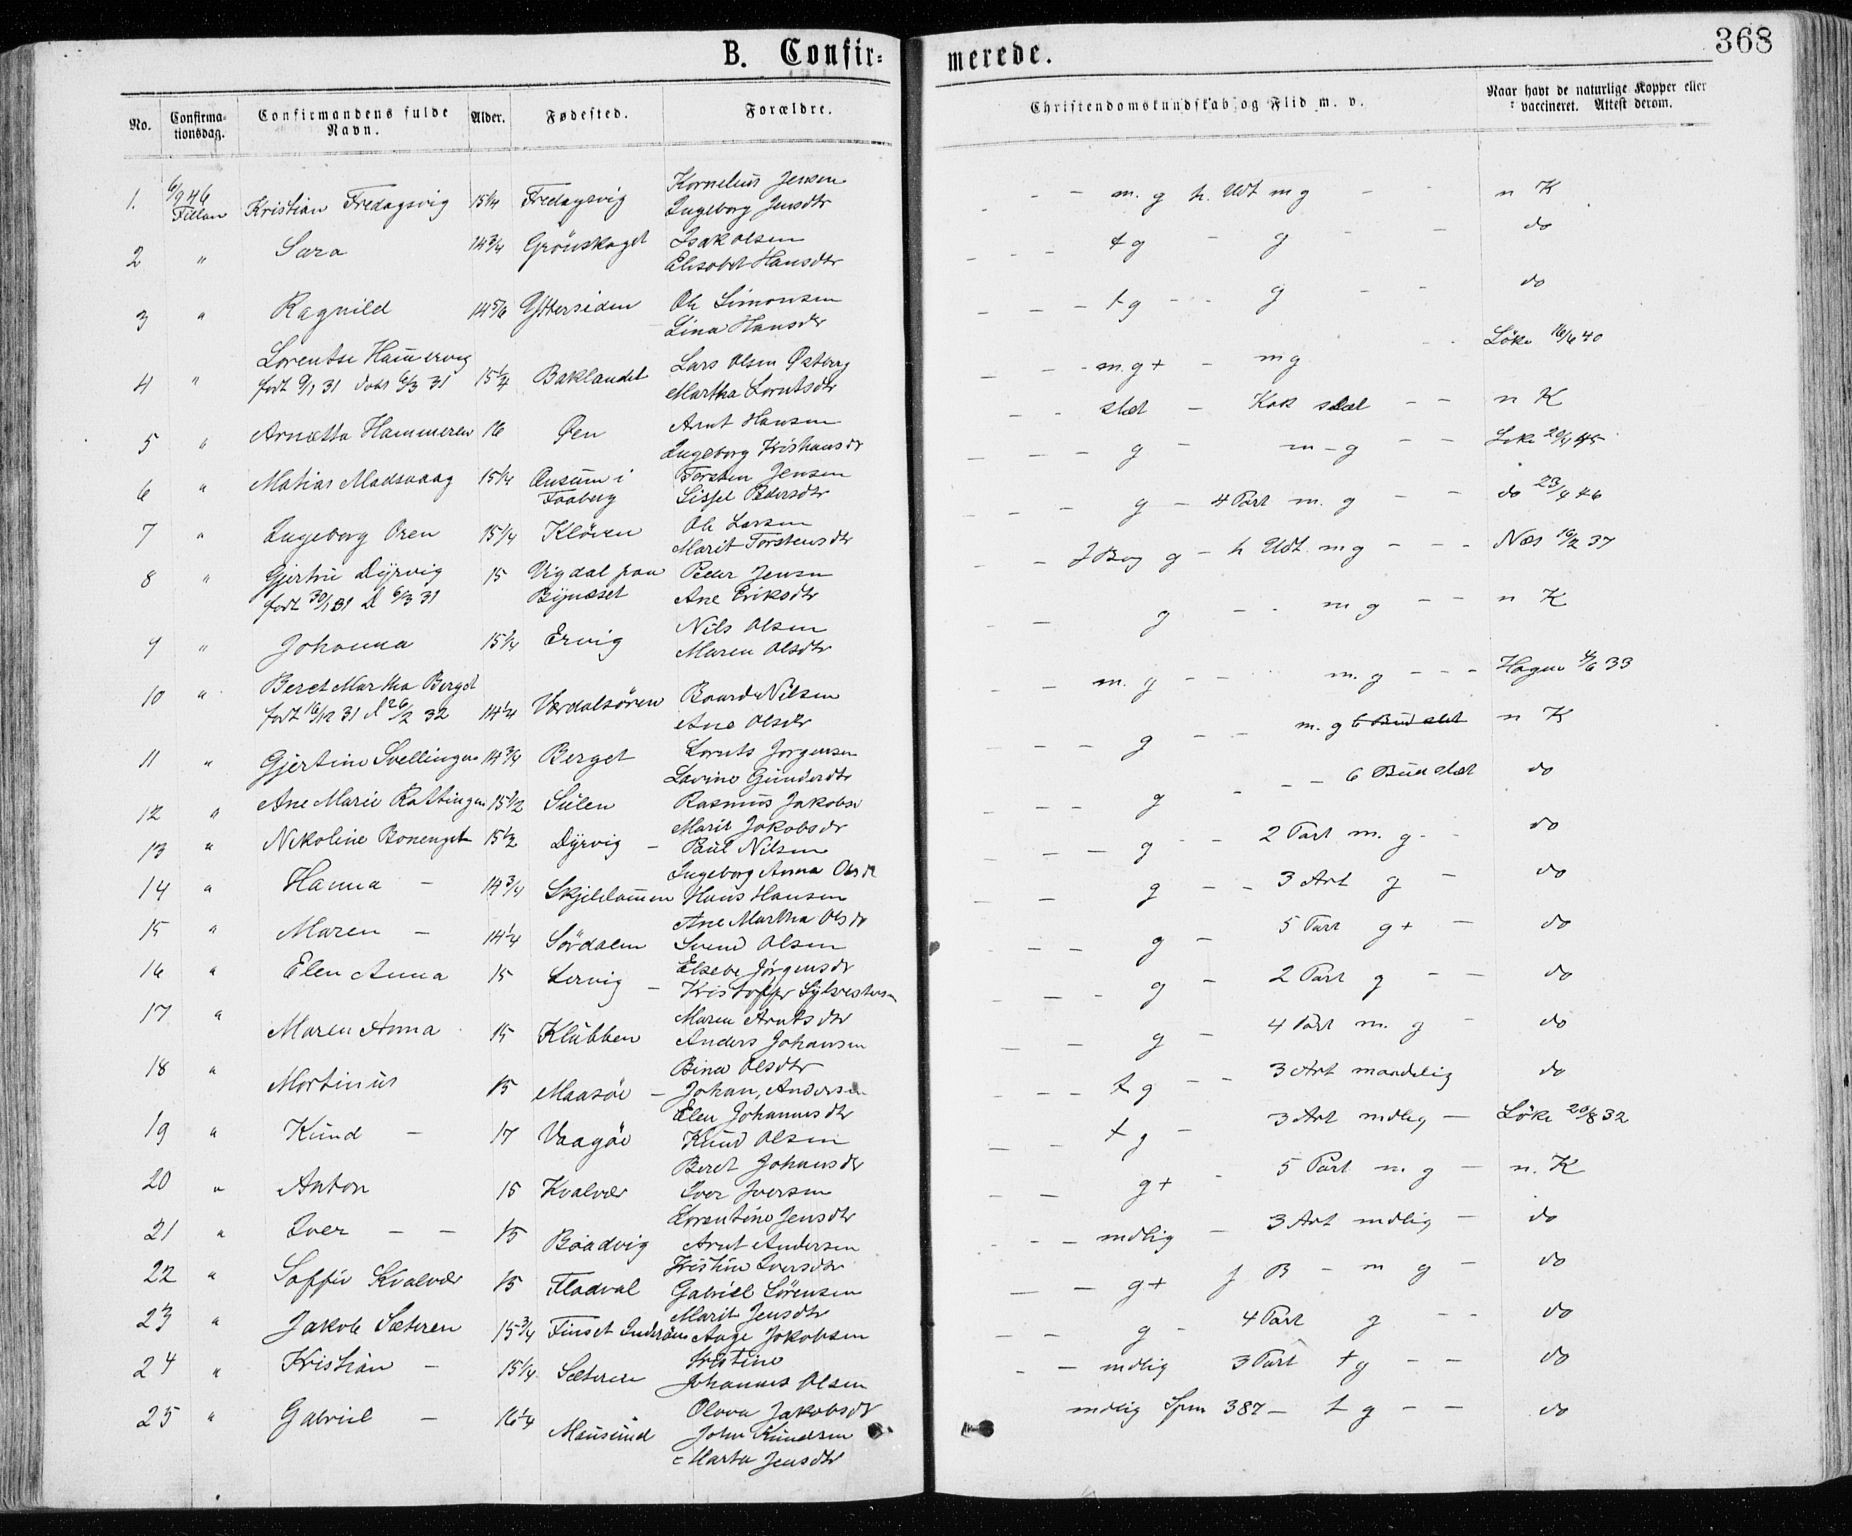 B. Confir=
merede.
368
No.
Confirma-
tionsdag.
Confirmandens fulde
Navn.
Alder.
Fødested.
Forældre.
Christendomskundskab og Flid m. v.
Naar havt de naturlige Kopper eller
vaccineret. Attest derom.
1. 6/9 46 Fillan Kristian Fredagsvig 15 1/4 Fredagsvig Kornelius Jensen
Ingeborg Jensdtr
- - m. g h. Udt m g - - n K
2 " Sara 14 3/4 Grönskaget Isak Olsen
Elisabet Hansdtr
- - - t g - g - - do
3 " Ragnild 14 5/6 Yttersiden Ole Simonsen
Lina Hansdr
- - - t g - - g - - do
4 " Lorentse Hammervig
født 9/1 31 døbt 6/3 31 15 1/4 Baklandet Lars Olsen Østberg
Martha Lorntsdtr
- - - m. g + - m g - - Löke 16/6 40
5 " Arnetta Hammeren 16 Øen Arnt Hansen
Ingeborg Kristiansdr
- - slet - Kak slet - - n K
6 " Matias Madsvaag 15 1/4 Onsum i
Faaberg Torsten Jensen
Sissel Pedersdtr
- - - g - m - g - - Loke 20/4 45
7 " Ingeborg Oren 15 1/4 Klöven Ole Larsen
Marit Torstensdtr
- - - g - 4 Part m. g - - do 23/4 46
8 " Gjertru Dyrvig
født 30/1 31 D 6/3 31 15 Vigdal paa
Bynæset Peder Jensen
Ane Eriksdtr
- - J Bog g - h Udt. m g - - - Næs 19/2 37
9 " Johanna 15 1/4 Ervig Nils Olsen
Maren Olsdtr
- - g - - m g - - n K
10 " Beret Martha Berget
født 16/12 31 d 26/2 32 14 1/4 Værdalsören Baard Nilsen
Ane Olsdtr
- - m. g - - m. g - - - Hagen 4/6 33
11 " Gjertine Svellingen 14 3/4 Berget Lornts Jørgensen
Lavine Gundersdtr
- - - g - - m. g 6 Bud slet n K
12 " Ane Marie Rottingen 15 1/2 Sulen Rasmus Jakobs
Marit Jakobsdr
- - g - - - 6 Bud slet do
13 " Nikoline Bonenget 15 1/2 Dyrvig - Paul Nilsen
Ingeborg Anna Olsdr
- - - g - - 2 Part m. g - - do
14 " Hanna - 14 3/4 Skjeldammen Hans Hansen
Ane Martha Olsdr
- - g - - 3 Art g - do
15 " Maren - 14 1/4 Sördalen Svend Olsen
Elsebe Jörgensdr
- - g - 5 Part g + - do
16 " Elen Anna 15 Lervig - Kristoffer Sylvestersen
Maren Arntsdtr
- - - g - 2 Part g - - do
17 " Maren Anna 15 Klubben Anders Johansen
Bina Olsdtr
- - g - 4 Part m. g - do
18 " Mortinus 15 Maasöe - Johan Andersen
Elen Johannesdtr
- - - t g - - 3 Art maadelig do
19 " Knud - 17 Vaagöe Knud Olsen
Beret Johansdr
- - t g - 3 Art mdleg - Löke 20/8 32
20 " Anton 15 Kvalvær Iver Iversen
Lorentine Jensdtr
- - g + - 5 Part m. g - n. K
21 " Iver - - 15 Boadvig Arnt Andersen
Kristine Iversdtr
- - - mdlig - 3 Art mdlig - do
22 " Soffie Kvalvær 15 Fladval Gabriel Sörensen
Marit Jensdtr
- - g + f B - m g - do
23 " Jakob Sæteren 15 3/4 Finset Inderöen Aage Jakobsen
Kristine
- - g - 4 Part g - - do
24 " Kristian - 15 1/4 Sæteren Johannes Olsen
Olava Jakobsdr
- - mdlig 3 Part t g - - do
25 " Gabriel - 16 1/4 Mausund John Knudsen
Marta Jensdtr
mdlig Spm 387 - t g - - do